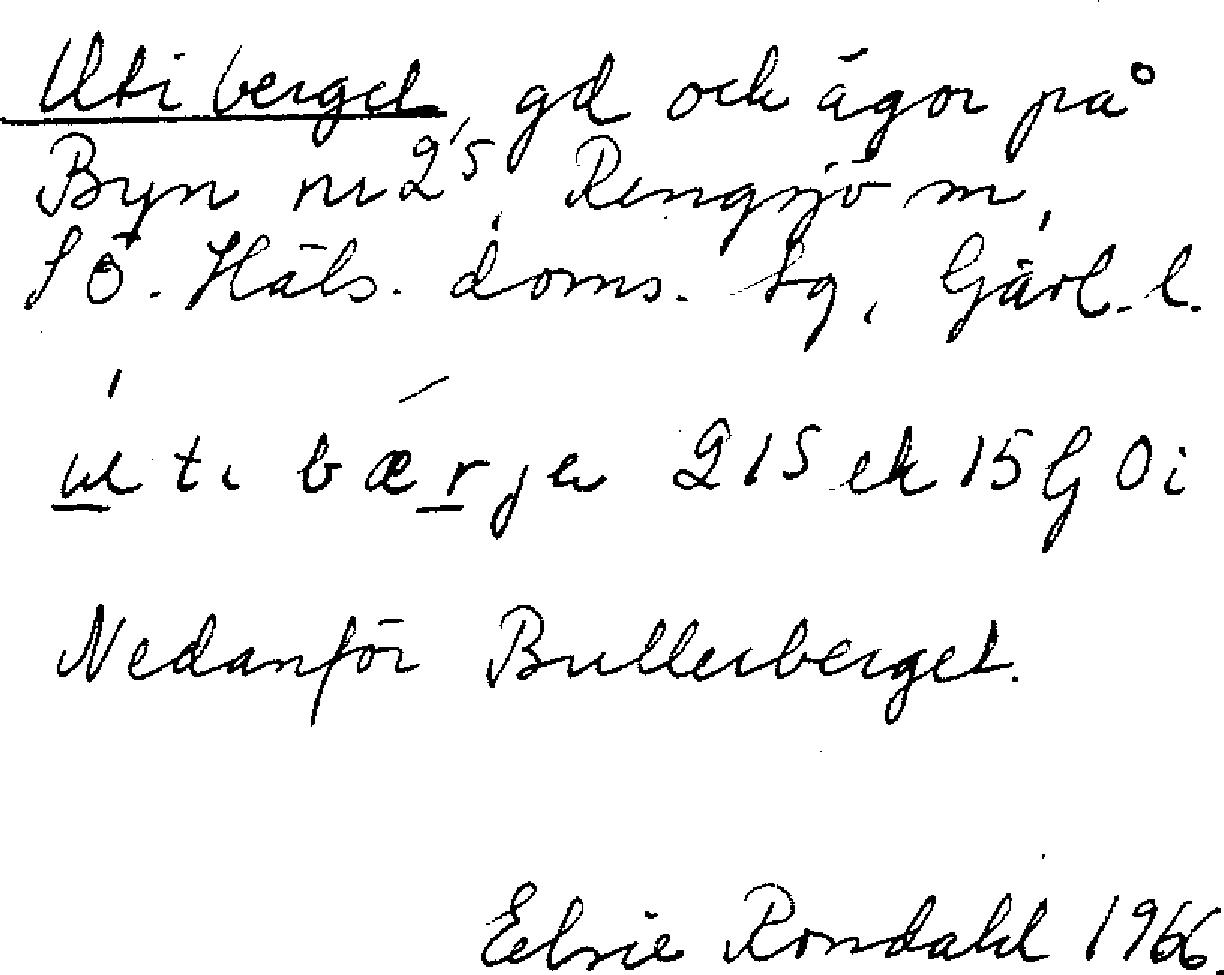 Uti berget, gd och ägor på
Byn nr 2⁵, Rengsjö sn,
SÖ. Häls. doms. tg, Gävl. l.
u̲ ti bær̲je 215 ek 15 G Ö i
Nedanför Bullerberget.
Elsie Rondahl 1966.